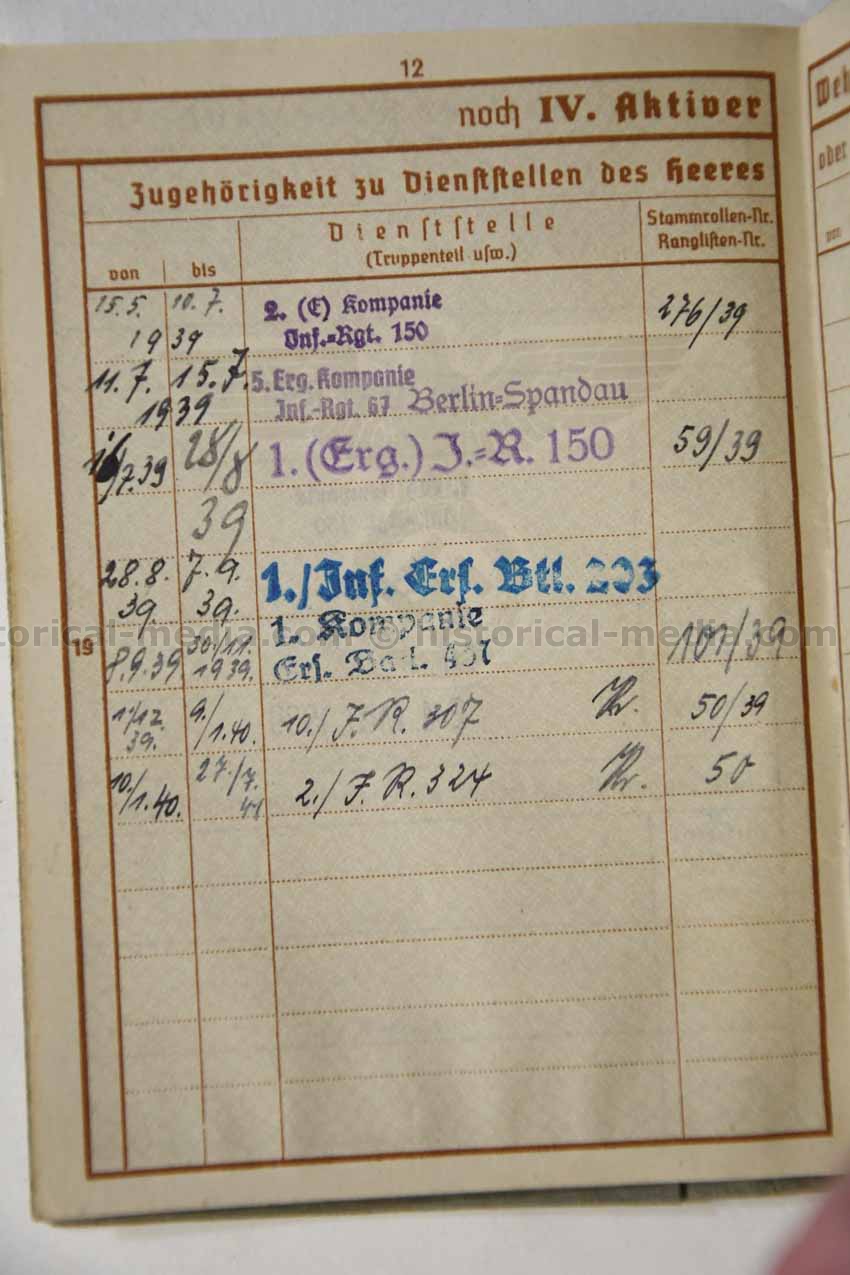 12
noch IV. Aktiver
Zugehörigkeit zu Dienststellen des Heeres
von bis
Dienststelle
(Truppenteil usw.)
Stammrollen-Nr.
Ranglisten-Nr.
15.5. 10.7.
1939
2. (E) Kompanie
Inf.=Rgt. 150
276/39
11.7. 15.7.
1939
5. Erg. Kompanie
Inf.-Rgt. 67 Berlin=Spandau
16/7.39 28/8
39
1. (Erg.) J.=R. 150
59/39
28.8. 7.9.
39. 39.
1./Inf. Ers. Btl. 203
19
8.9.39 30/11.
1939.
1. Kompanie
Ers.
101/39
39. 9./1.40.
10./ J.R. 307
50/39
10./1.40. 27./7.
41
2./ J.R. 324
50
torical-media.com © historical-media.com
Weh
oder
von